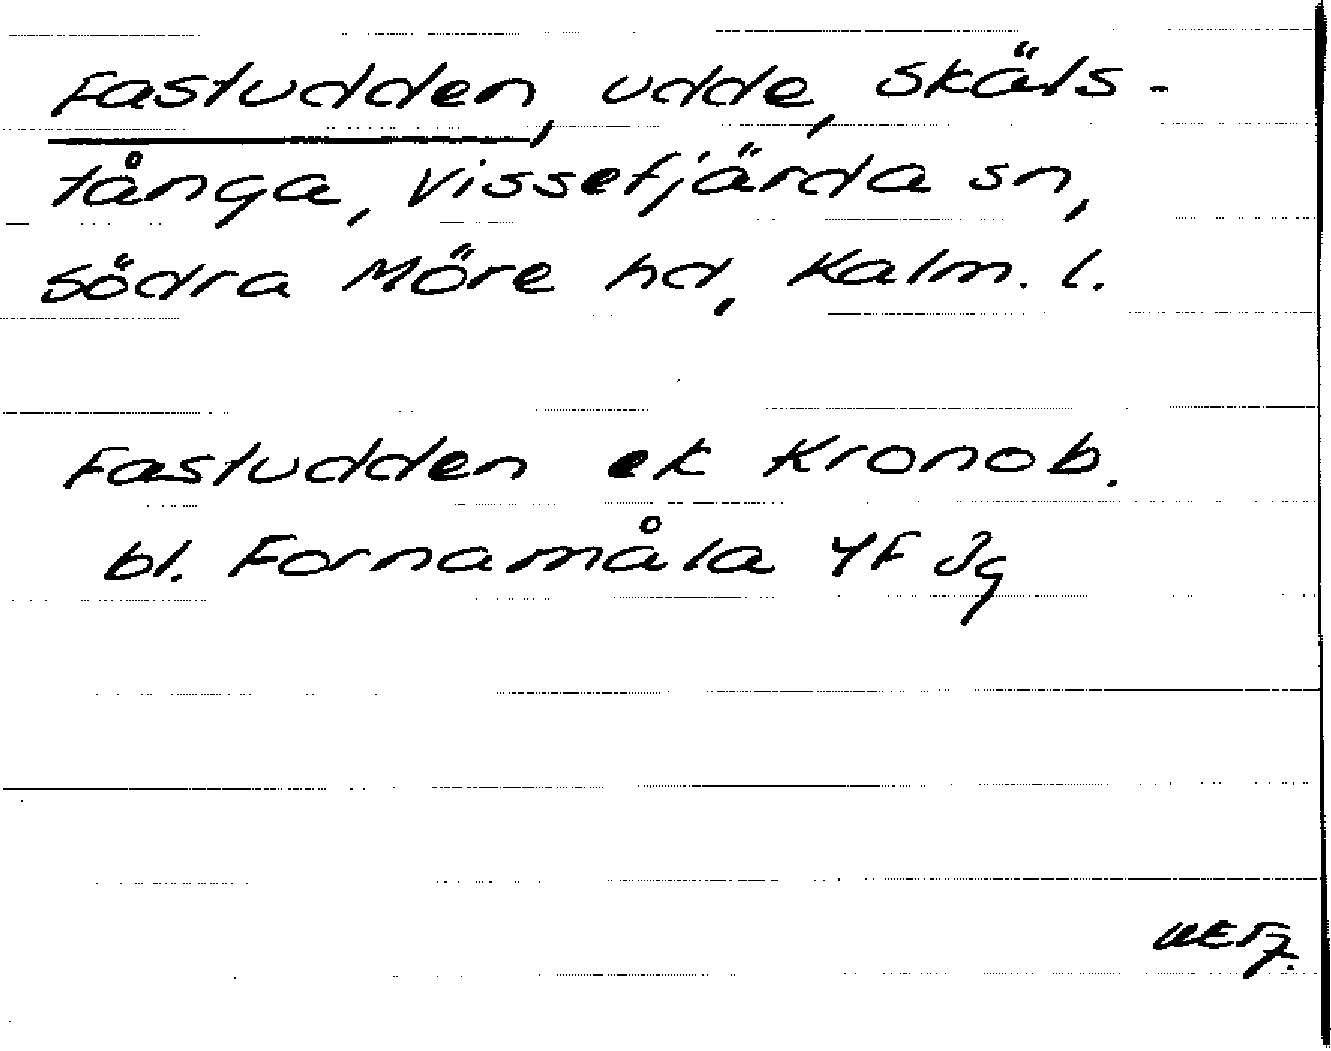 Fastudden, udde, Skäls-
tånga, Vissefjärda sn,
Södra Möre hd, Kalm. l.
Fastudden ek Kronob.
bl. Fornamåla 4F